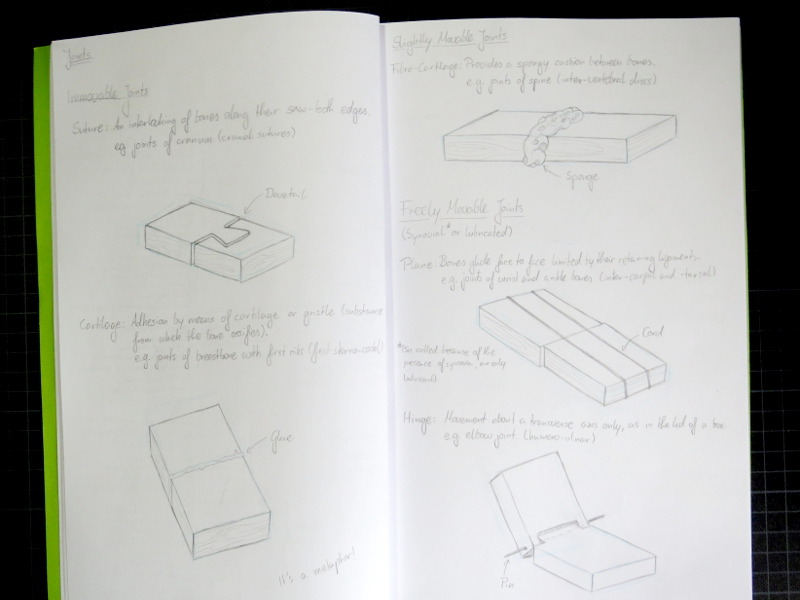 Joints
Immovable Joints
Suture: An interlocking of bones along their saw-toth edges.
e.g. joints of cranium (cranial sutures)
Dovetail
Cartiloge: Adhesion by means of cartilage or gristle (substance
from which the bone ossifies).
e.g. joints of breastbone with first ribs (first sterno-costal)
Glue
It's a metaphor!
Slightly Movable Joints
Fibro-Cartilage: Provides a spongy cushion between bones.
e.g. joints of spine (inter-vertebral discs)
Sponge
Freely Movable Joints
(Synovial* or lubricated)
Plane: Bones glide face to face limited by their retaining ligaments.
e.g. joints of wrist and ankle bones (inter-carpal and -tarsal)
Cord
*(so called because of the
presence of synovia, an oily
lubricant)
Hinge: Movement about a transverse axis only, as in the lid of a box.
e.g. elbow joint (humero-ulnar)
Pin